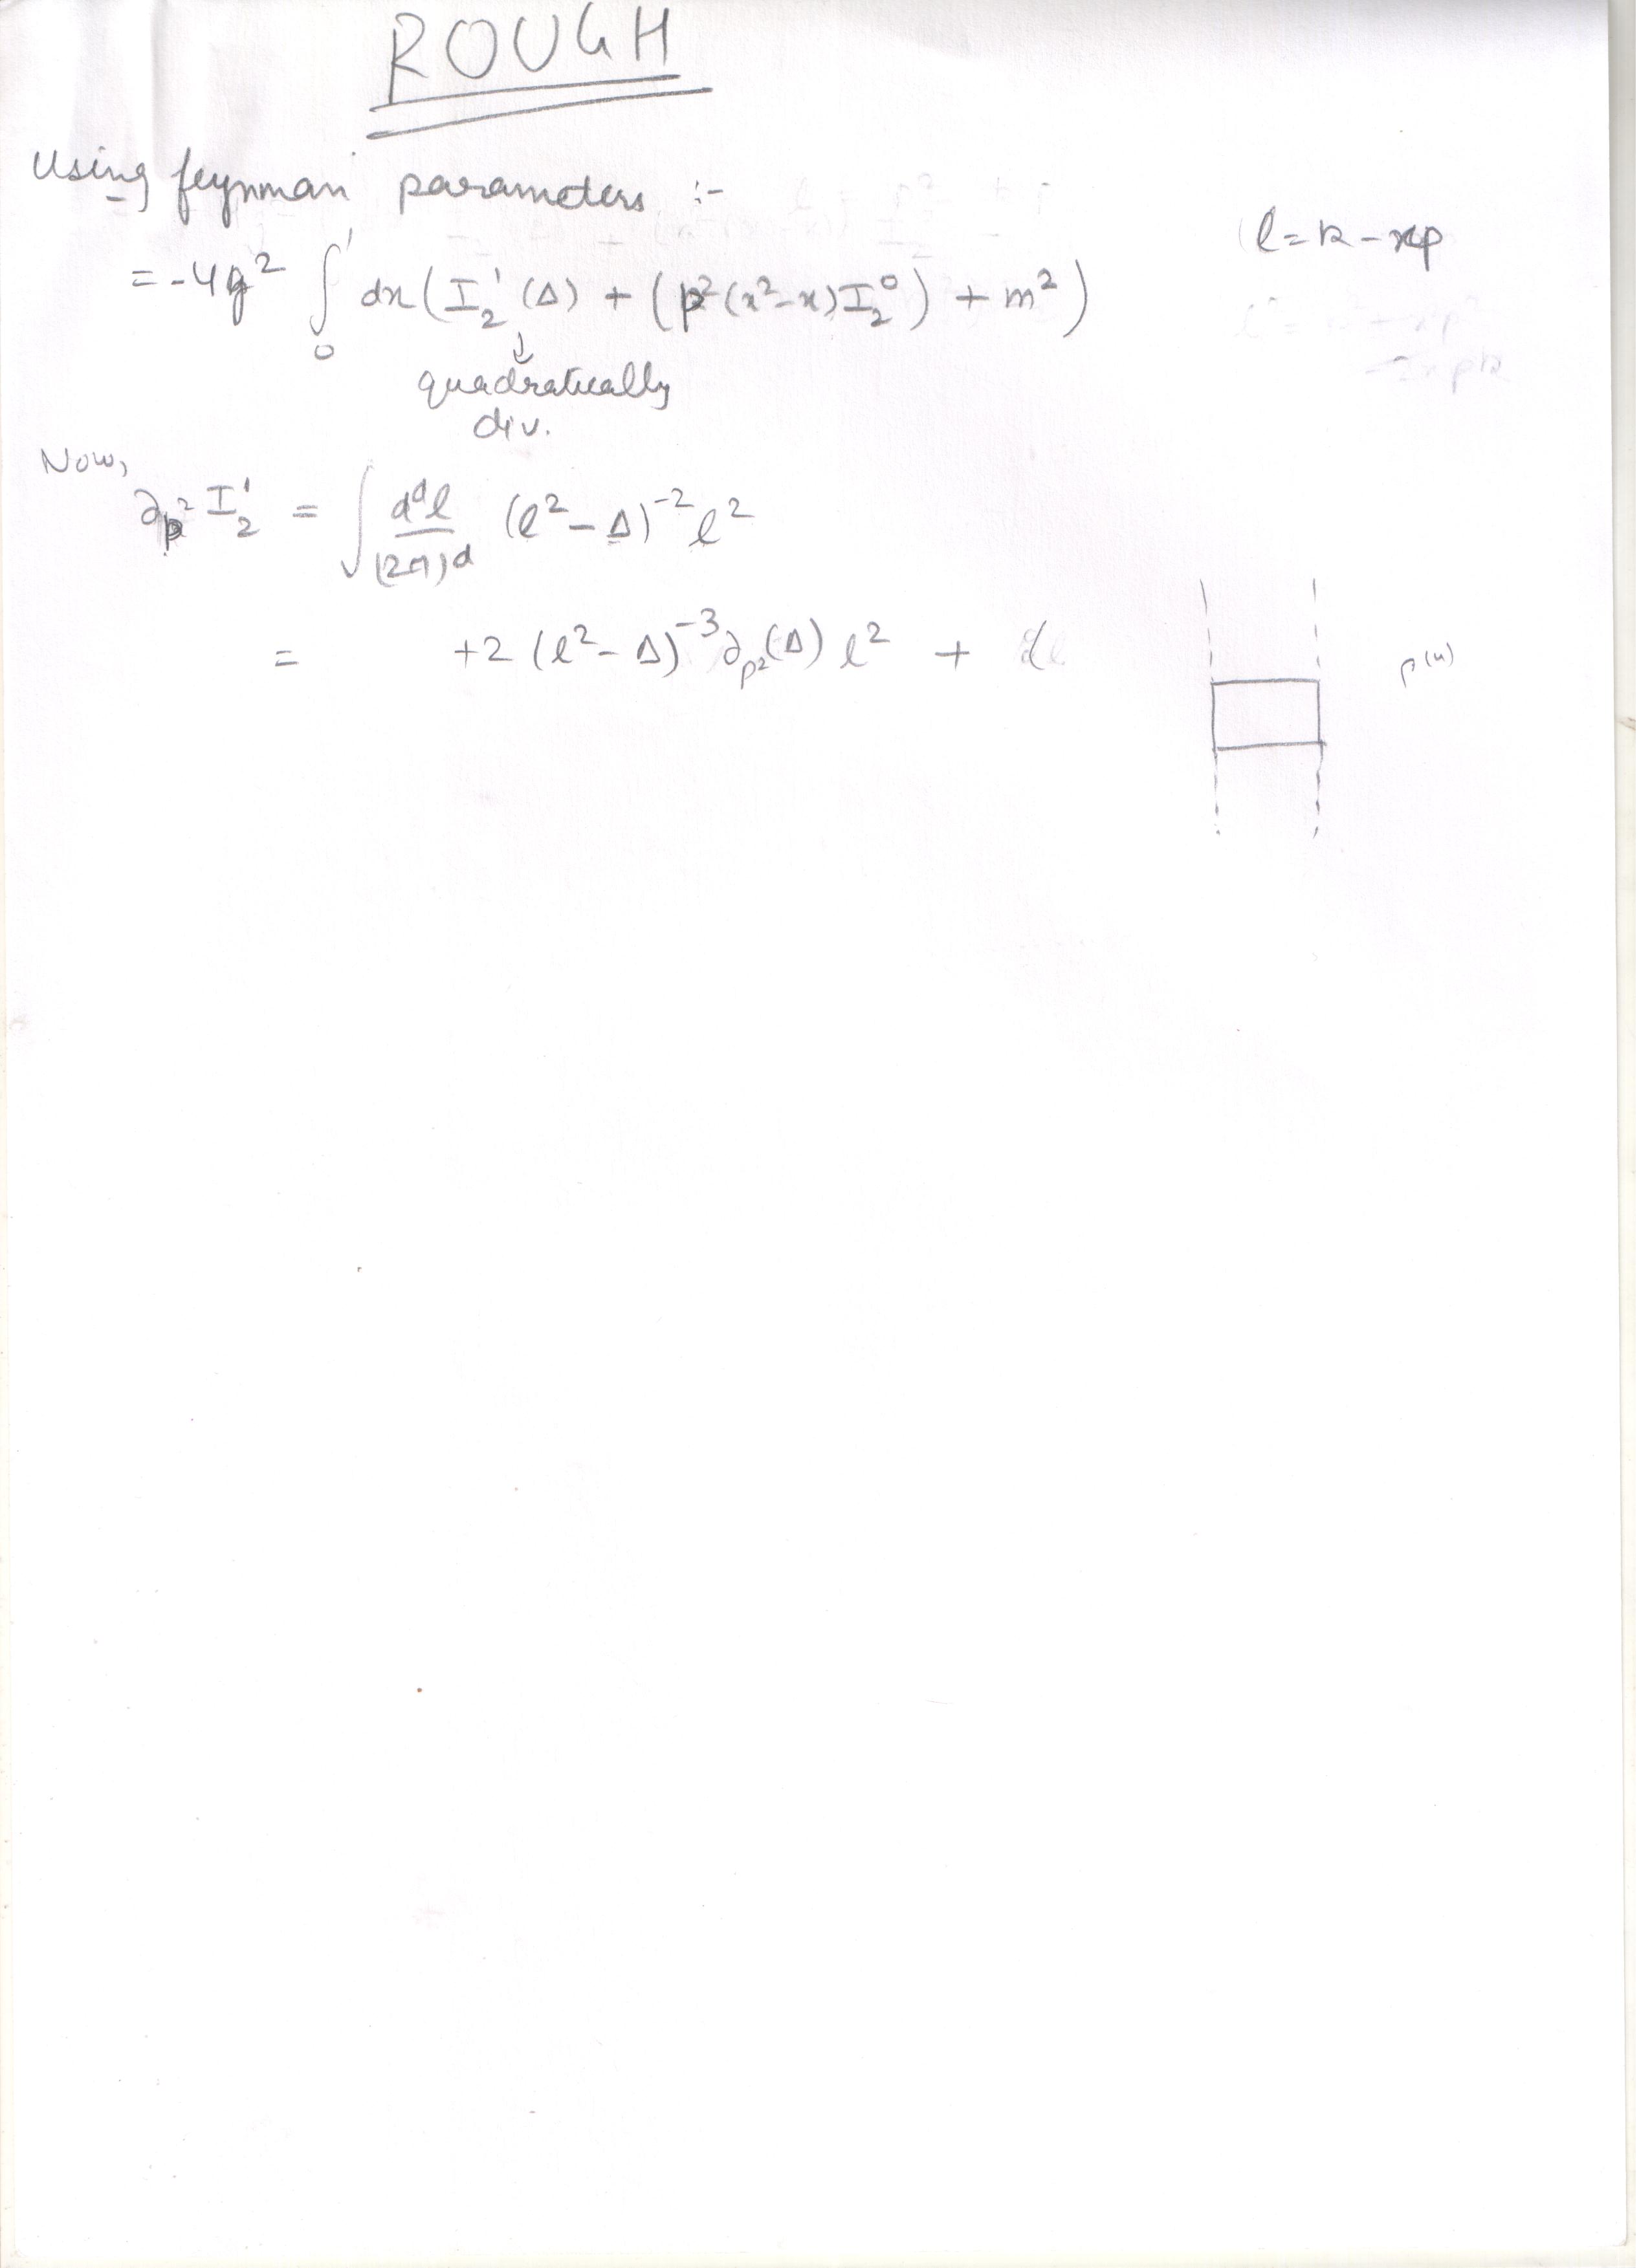 ROUGH
Using feynman parameters :-
l = k - xp
= -4g² ∫₀¹ dx ( I₂¹ (Δ) + (p²(x²-x) I₂⁰) + m² )
↓
quadratically
div.
Now,
∂p² I₂¹ = ∫ dᵈl/(2π)ᵈ (l² - Δ)⁻² l²
= +2 (l² - Δ)⁻³ ∂p²(Δ) l² +